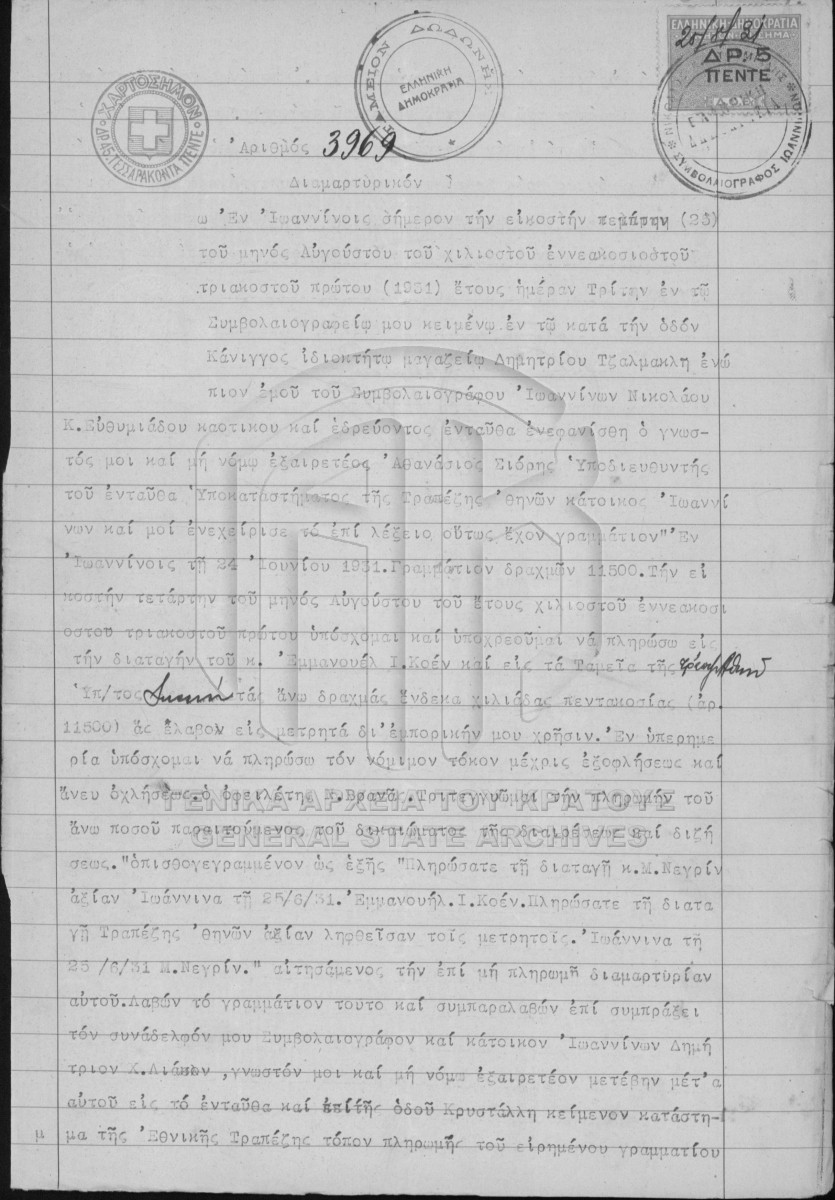 ΤΑΜΕΙΟΝ ΔΩΔΩΝΗΣ
ΕΛΛΗΝΙΚΗ
ΔΗΜΟΚΡΑΤΙΑ
ΕΛΛΗΝΙΚΗ ΔΗΜΟΚΡΑΤΙΑ
ΔΡ 5
ΠΕΝΤΕ
ΣΥΜΒΟΛΑΙΟΓΡΑΦΟΣ ΙΩΑΝΝΙΝΩΝ
ΧΑΡΤΟΣΗΜΟΝ
ΔΡ. 45 ΤΕΣΣΑΡΑΚΟΝΤΑ ΠΕΝΤΕ
Ἀριθμός 3969
Διαμαρτυρικόν
ω Ἐν Ἰωαννίνοις σήμερον τήν εἰκοστήν πεμπτην (25)
τοῦ μηνός Αὐγούστου τοῦ χιλιοστοῦ ἐννεακοσιοστοῦ
τριακοστοῦ πρώτου (1931) ἔτους ἡμέραν Τρίτην ἐν τῷ
Συμβολαιογραφείῳ μου κειμένῳ ἐν τῷ κατά τήν ὁδόν
Κάνιγγος ἰδιοκτήτῳ μαγαζείῳ Δημητρίου Τζαλμακλη ἐνώ
πιον ἐμοῦ τοῦ Συμβολαιογράφου Ἰωαννίνων Νικολάου
Κ.Εὐθυμιάδου καοτικου καί ἑδρεύοντος ἐνταῦθα ἐνεφανίσθη ὁ γνωσ-
τός μοι καί μή νόμῳ ἐξαιρετέος Ἀθανάσιος Σιόρης Ὑποδιευθυντής
τοῦ ἐνταῦθα Ὑποκαταστήματος τῆς Τραπέζης Ἀθηνῶν κάτοικος Ἰωαννί
νων καί μοί ἐνεχείρισε τό ἐπί λέξειο οὕτως ἔχον γραμμάτιον "Ἐν
Ἰωαννίνοις τῇ 24 Ἰουνίου 1931.Γραμμάτιον δραχμῶν 11500.Τήν εἰ
κοστήν τετάρτην τοῦ μηνός Αὐγούστου τοῦ ἔτους χιλιοστοῦ ἐννεακοσι
οστοῦ τριακοστοῦ πρώτου ὑπόσχομαι καί ὑποχρεοῦμαι νά πληρώσω εἰς
τήν διαταγήν τοῦ κ. Ἐμμανουέλ Ι.Κοέν καί εἰς τά Ταμεῖα τῆς
Ὑπ/τος τάς ἄνω δραχμάς ἕνδεκα χιλιάδας πεντακοσίας (ἀρ.
11500) ἅς ἔλαβον εἰς μετρητά δι'ἐμπορικήν μου χρῆσιν. Ἐν ὑπερημε
ρία ὑπόσχομαι νά πληρώσω τόν νόμιμον τόκον μέχρις ἐξοφλήσεως καί
ἄνευ ὀχλήσεως ὁ ὀφειλέτης Κ.Βρανᾶς.Τριτεγγυῶμαι τήν πληρωμήν τοῦ
ΓΕΝΙΚΑ ΑΡΧΕΙΑ ΤΟΥ ΚΡΑΤΟΥΣ
ἄνω ποσοῦ παραιτούμενος τοῦ δικαιώματος τῆς διαιρέσεως καί διζή
GENERAL STATE ARCHIVES
σεως."ὀπισθογεγραμμένον ὡς ἑξῆς "Πληρώσατε τῇ διαταγῇ κ.Μ.Νεγρίν
ἀξίαν Ἰωάννινα τῇ 25/6/31.Ἐμμανουήλ.Ι.Κοέν.Πληρώσατε τῇ διατα
γῇ Τραπέζης Ἀθηνῶν ἀξίαν ληφθεῖσαν τοῖς μετρητοῖς.Ἰωάννινα τῇ
25 /6/31 Μ.Νεγρίν." αἰτησάμενος τήν ἐπί μή πληρωμῇ διαμαρτυρίαν
αὐτοῦ.Λαβών τό γραμμάτιον τοῦτο καί συμπαραλαβών ἐπί συμπράξει
τόν συνάδελφόν μου Συμβολαιογράφον καί κάτοικον Ἰωαννίνων Δημή
τριον Χ. ,γνωστόν μοι καί μή νόμῳ ἐξαιρετέον μετέβην μέτ'α
αὐτοῦ εἰς τό ἐνταῦθα καί ἐπί τῆς ὁδοῦ Κρυστάλλη κείμενον κατάστη-
μ μα τῆς Ἐθνικῆς Τραπέζης τόπον πληρωμῆς τοῦ εἰρημένου γραμματίου